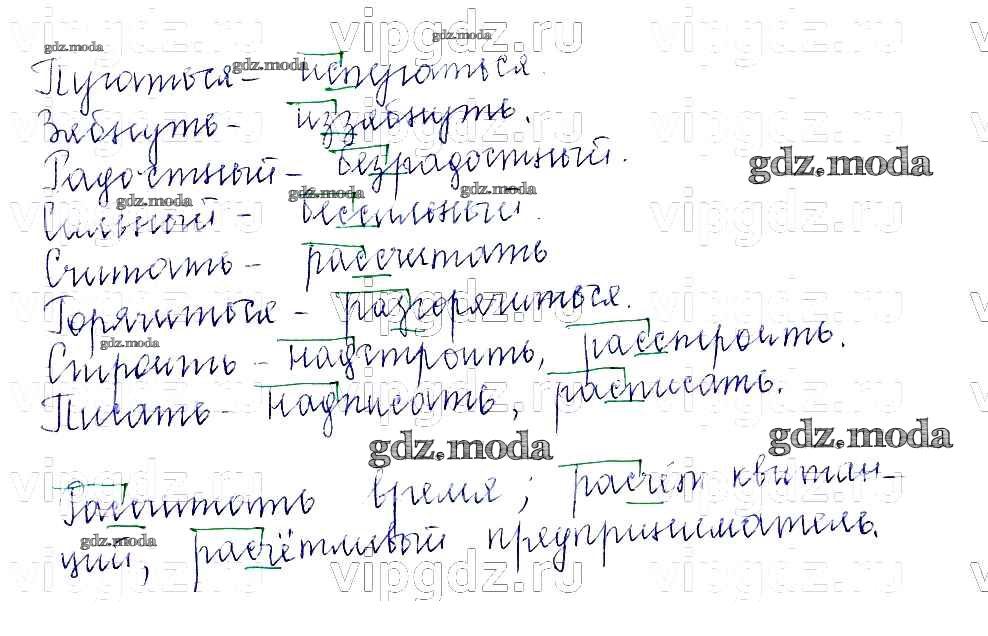 Пугаться - испугаться.
Зябнуть - иззябнуть.
Радостный - безрадостный.
Сильный - бессильный.
Считать - рассчитать
Горячиться - разгорячиться.
Строить - надстроить, расстроить.
Писать - надписать, расписать.
Рассчитать время, расчёт квитан-
ции, расчётливый предприниматель.
gdz.moda
vipgdz.ru